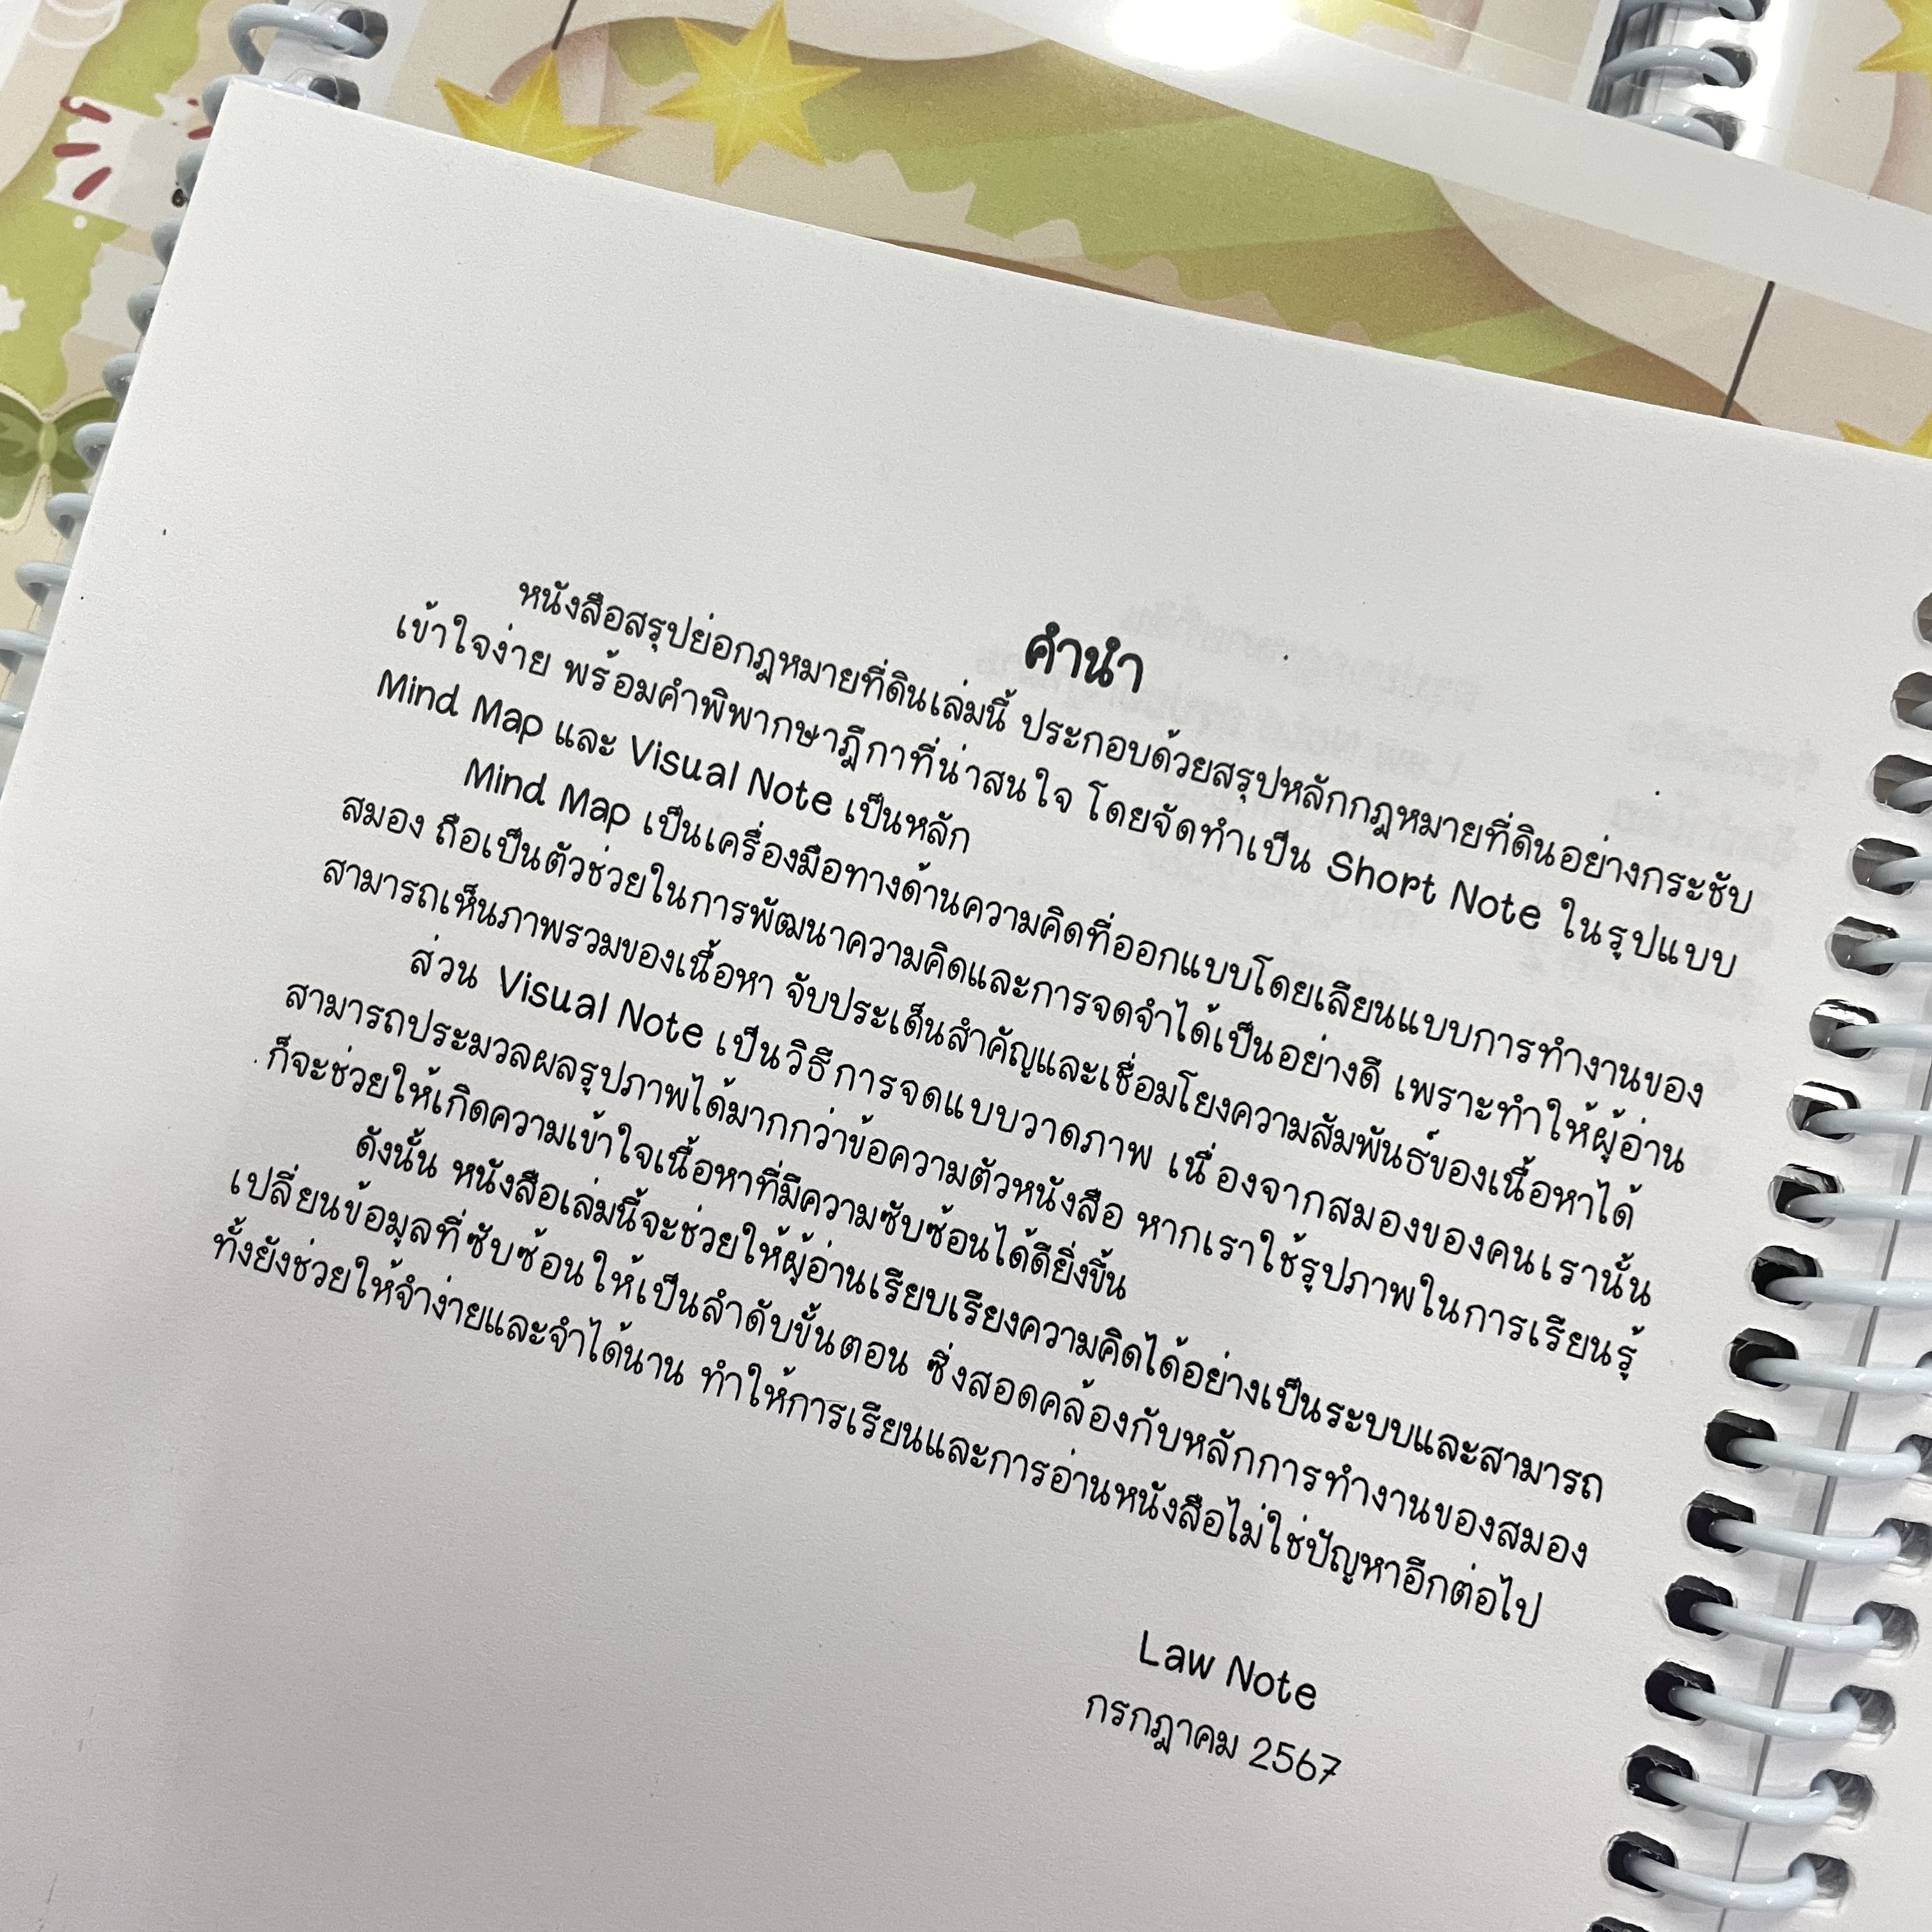 คำนำ
หนังสือสรุปย่อกฎหมายที่ดินเล่มนี้ ประกอบด้วยสรุปหลักกฎหมายที่ดินอย่างกระชับ
เข้าใจง่าย พร้อมคำพิพากษาฎีกาที่น่าสนใจ โดยจัดทำเป็น Short Note ในรูปแบบ
Mind Map และ Visual Note เป็นหลัก
Mind Map เป็นเครื่องมือทางด้านความคิดที่ออกแบบโดยเลียนแบบการทำงานของ
สมอง ถือเป็นตัวช่วยในการพัฒนาความคิดและการจดจำได้เป็นอย่างดี เพราะทำให้ผู้อ่าน
สามารถเห็นภาพรวมของเนื้อหา จับประเด็นสำคัญและเชื่อมโยงความสัมพันธ์ของเนื้อหาได้
ส่วน Visual Note เป็นวิธีการจดแบบวาดภาพ เนื่องจากสมองของคนเรานั้น
สามารถประมวลผลรูปภาพได้มากกว่าข้อความตัวหนังสือ หากเราใช้รูปภาพในการเรียนรู้
ก็จะช่วยให้เกิดความเข้าใจเนื้อหาที่มีความซับซ้อนได้ดียิ่งขึ้น
ดังนั้น หนังสือเล่มนี้จะช่วยให้ผู้อ่านเรียบเรียงความคิดได้อย่างเป็นระบบและสามารถ
เปลี่ยนข้อมูลที่ซับซ้อนให้เป็นลำดับขั้นตอน ซึ่งสอดคล้องกับหลักการทำงานของสมอง
ทั้งยังช่วยให้จำง่ายและจำได้นาน ทำให้การเรียนและการอ่านหนังสือไม่ใช่ปัญหาอีกต่อไป
Law Note
กรกฎาคม 2567